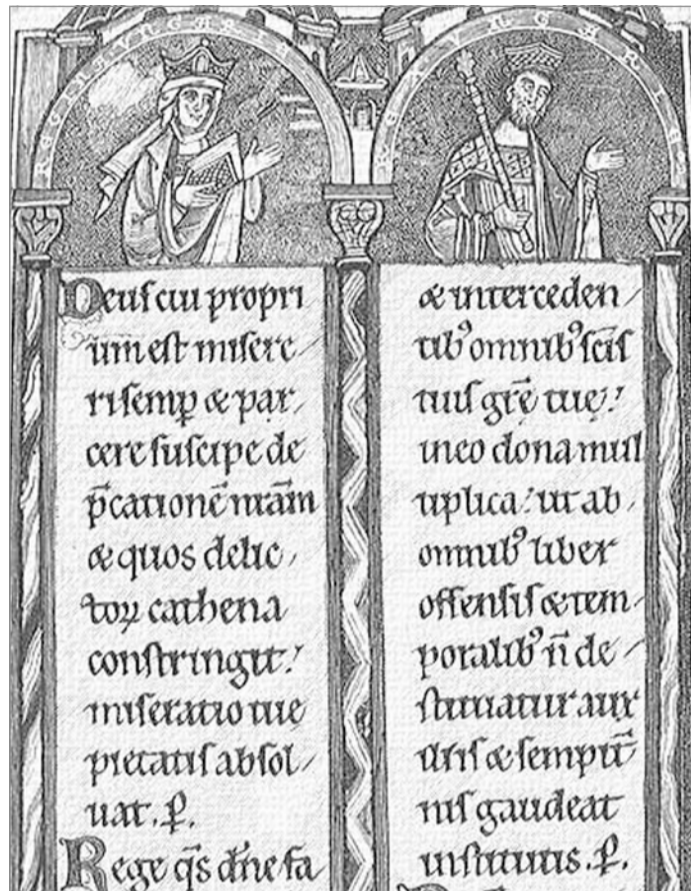 REGINA VNGARIE
REX VNGARIE
Deuſ cui propri
um eſt miſere/
ri ſemꝑ & par/
cere ſuſcipe de
p̄cationē nr̄am
& quos delic/
toꝝ cathena
conſtringit:
miſeratio tue
pietatiſ abſol/
uat. P̲.
Rege q̄s dn̄e fa
& interceden/
tibꝰ omnibꝰ ſc̄iſ
tuiſ gr̄ę tuę:
in eo dona mul
tiplica: ut ab/
omnibꝰ liber
offenſiſ & tem/
poralibꝰ n̄ de/
ſtituatur aux
iliiſ & ſempit̄
niſ gaudeat
inſtitutis. P̲.